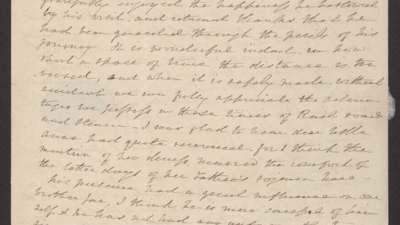 gratefully enjoyed the happiness he bestowed
by his visit, and returned thanks that he
had been protected through the perils of his
journey. It is wonderful indeed, in how
short a space of time the distance is tra
versed, and when it is safely made without
accident we can fully appreciate the
we possess in these times of Rail roads
and Steam. I was glad to hear dear
Anna had quite recovered, for I think the
mention of her illness marred the comfort of
the latter days of her Father's
his presence had a good influence on
brother Joe, I think he is more careful of him
self & he has not had any